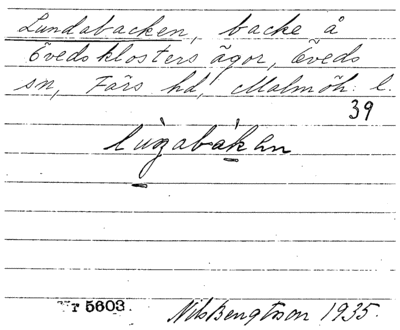 Lundabacken, backe å
Övedsklosters ägor, Öveds
sn, Färs hd, Malmöh. l.
39
lùŋabákən
Nr 5603. Nils Bengtsson 1935.